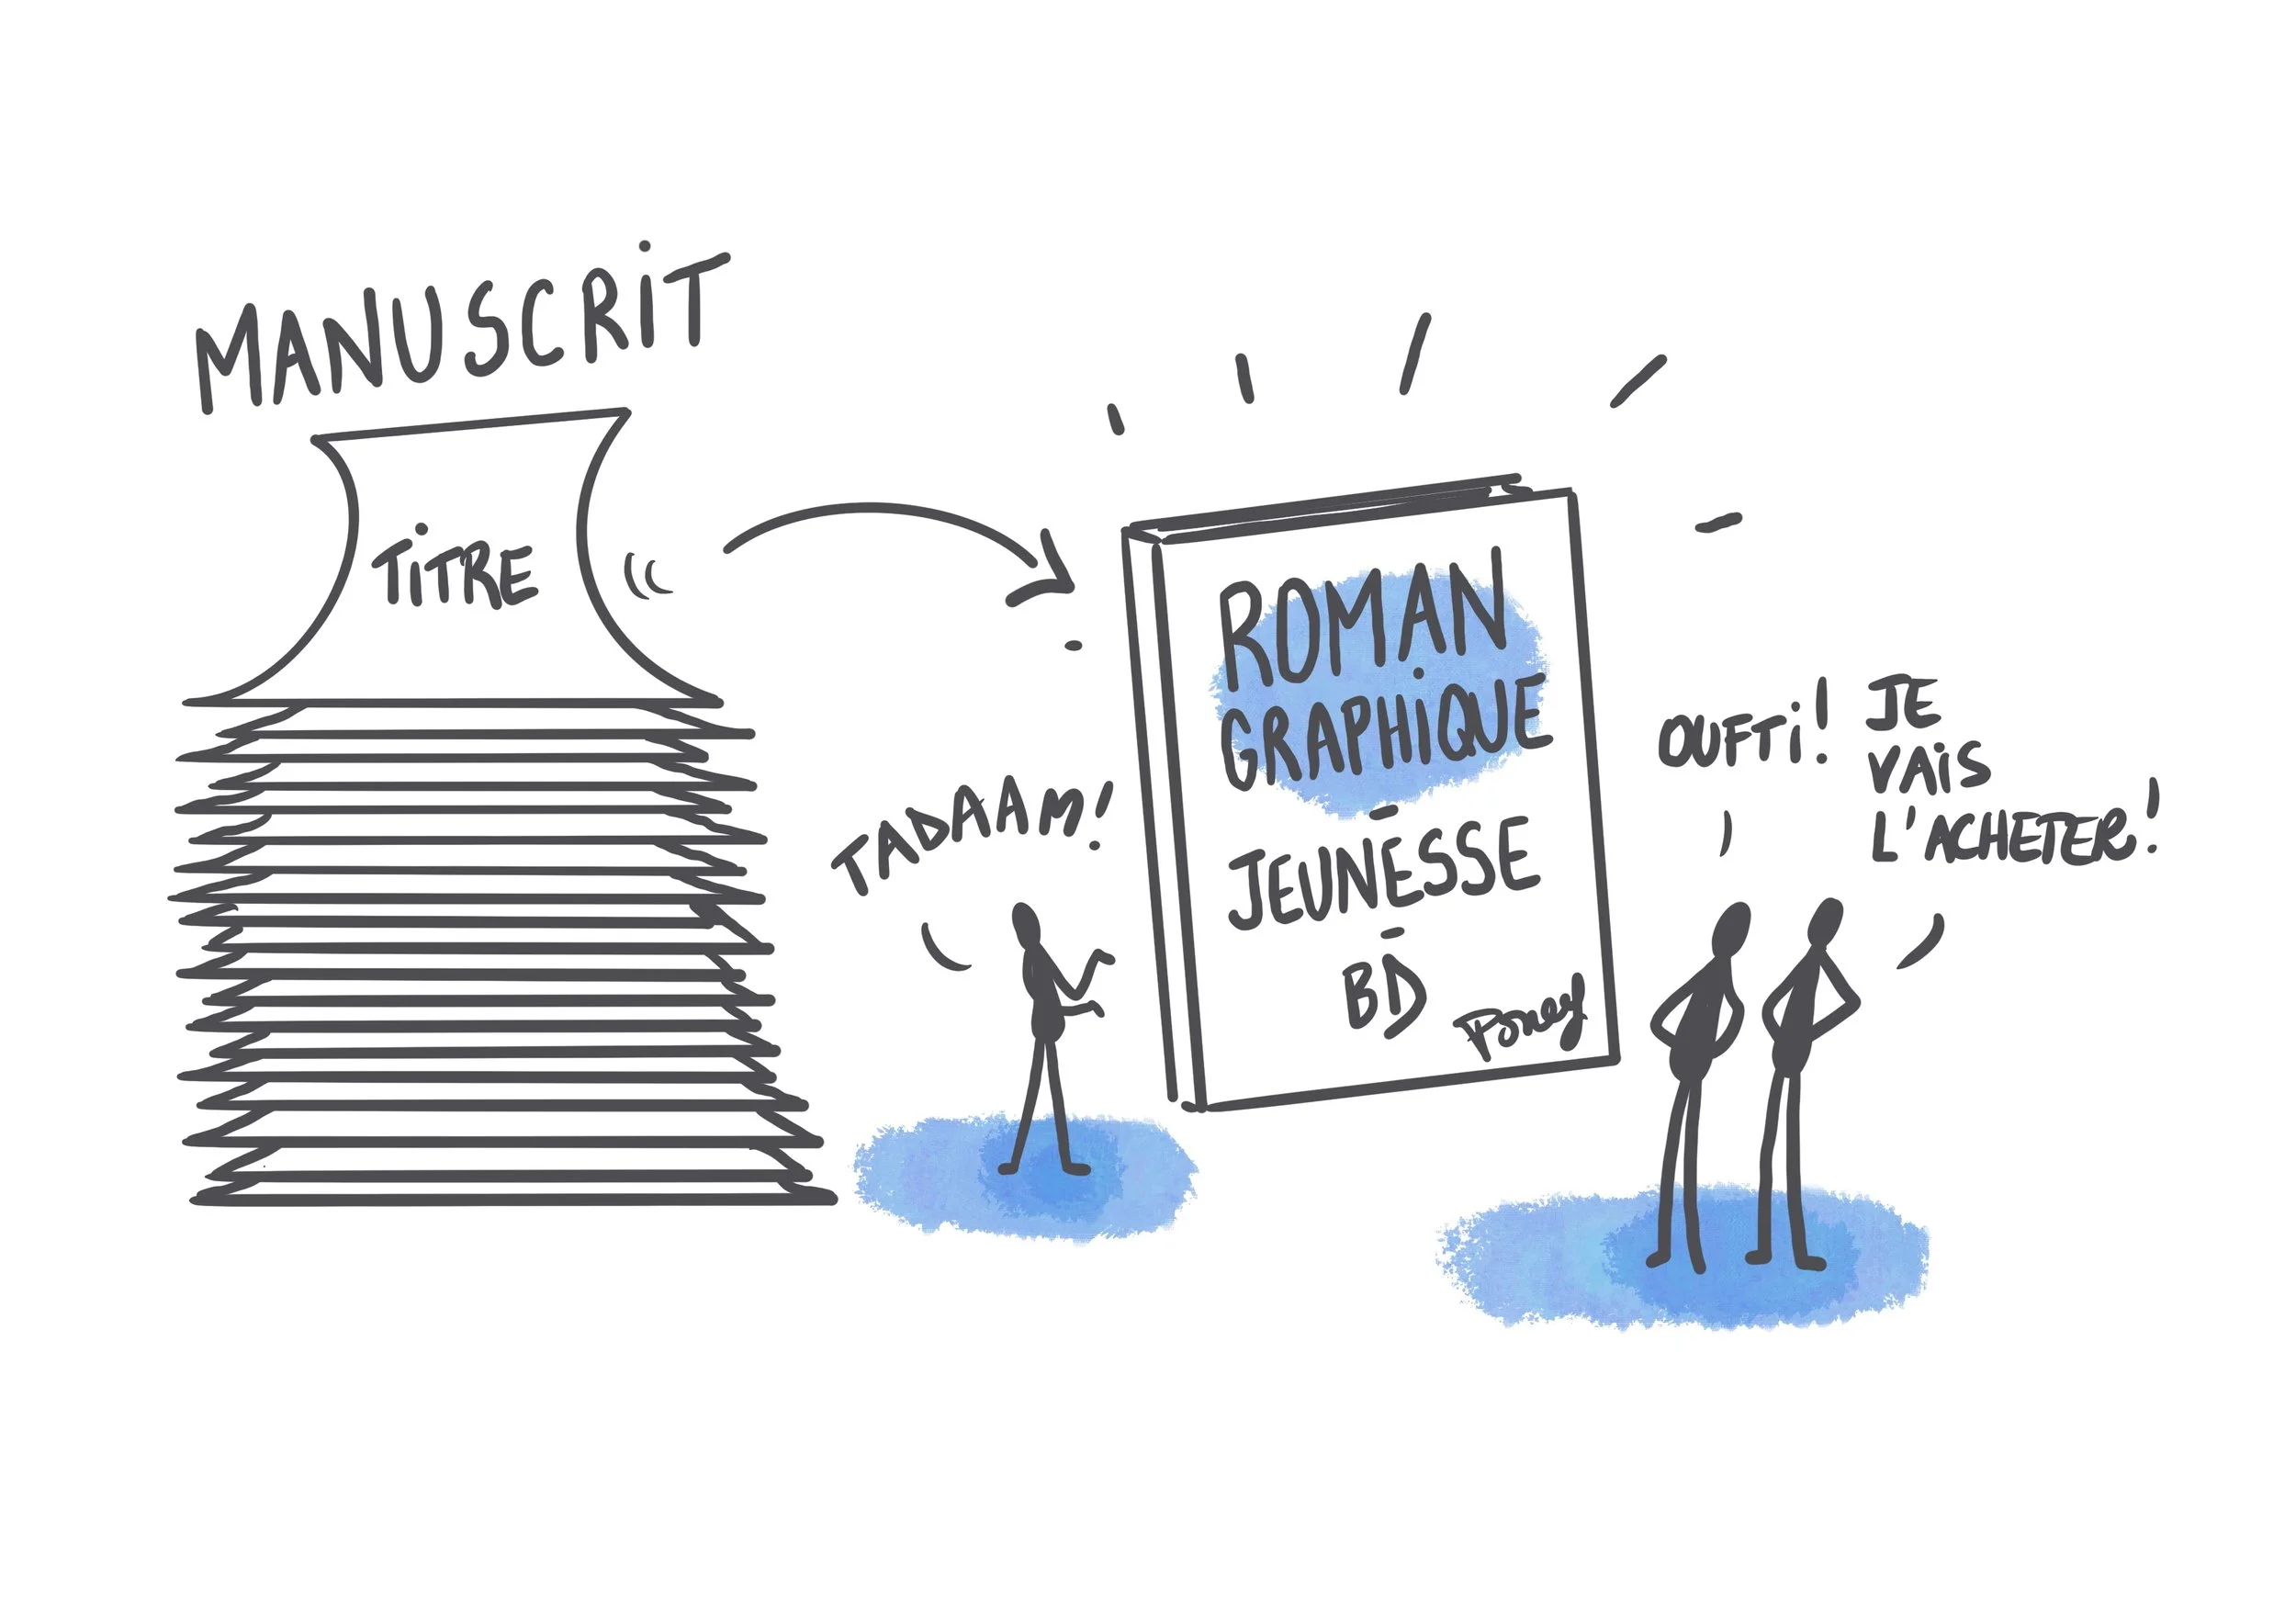 MANUSCRiT
TiTRE
TADAAM!
ROMAN
GRAPHiQUE
-
JEUNESSE
-
BD
Poney
OUFTi!
JE
VAiS
L'ACHETER!